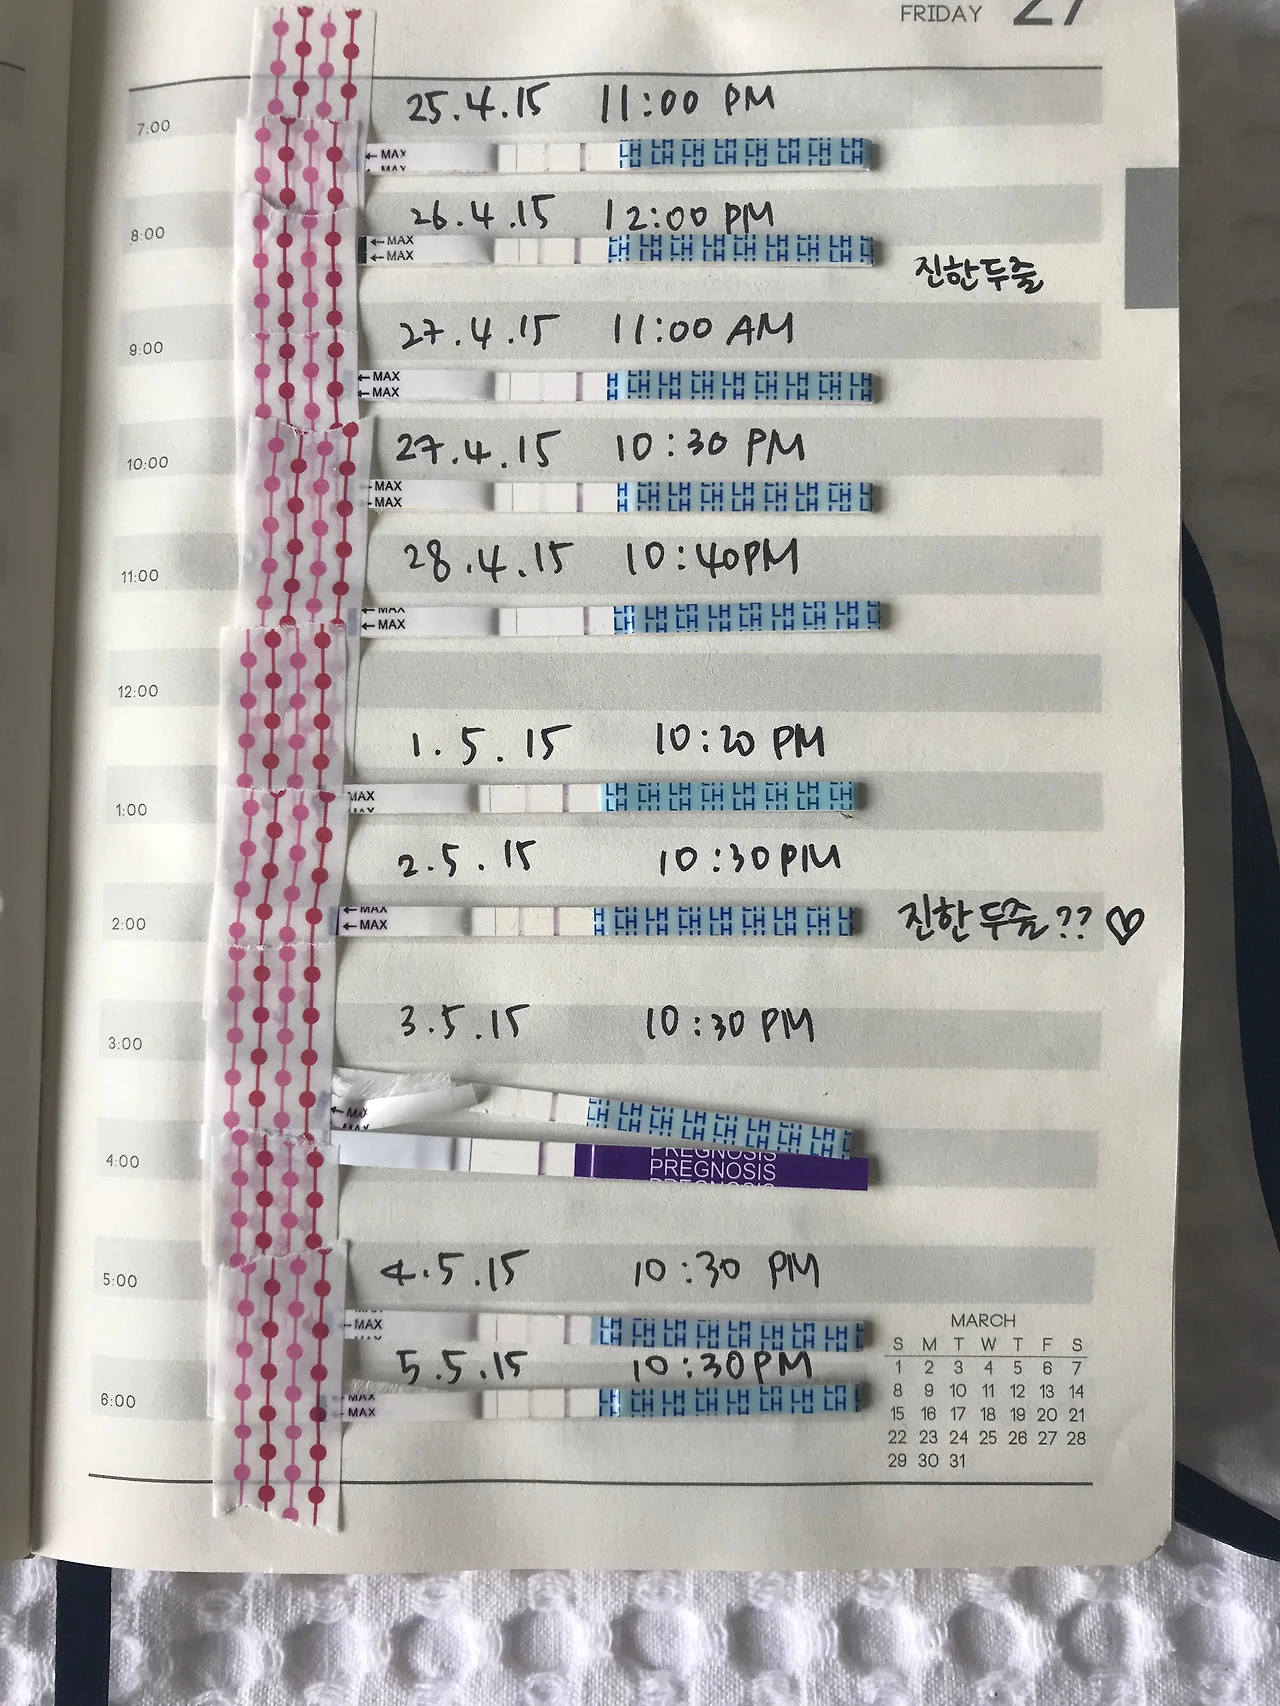 FRIDAY 27
25.4.15 11:00 PM
7:00
←MAX
MAX
LH LH LH LH LH LH LH LH
26.4.15 12:00 PM
8:00
←MAX
←MAX
LH LH LH LH LH LH LH LH
진한두줄
27.4.15 11:00 AM
9:00
←MAX
←MAX
LH LH LH LH LH LH LH LH
27.4.15 10:30 PM
10:00
MAX
MAX
LH LH LH LH LH LH LH
28.4.15 10:40PM
11:00
MAX
←MAX
LH LH LH LH LH LH LH LH
12:00
1.5.15 10:20 PM
1:00
MAX
MAX
LH LH LH LH LH LH LH LH
2.5.15 10:30PM
2:00
←MAX
←MAX
LH LH LH LH LH LH LH LH
진한두줄?? ♡
3.5.15 10:30 PM
3:00
←MAX
MAX
LH LH LH LH LH LH LH LH
4:00
PREGNOSIS
PREGNOSIS
PREGNOSIS
4.5.15 10:30 PM
5:00
MAX
←MAX
MAX
LH LH LH LH LH LH LH LH
5.5.15 10:30PM
6:00
MAX
←MAX
LH LH LH LH LH LH LH LH
MARCH
S M T W T F S
1 2 3 4 5 6 7
8 9 10 11 12 13 14
15 16 17 18 19 20 21
22 23 24 25 26 27 28
29 30 31